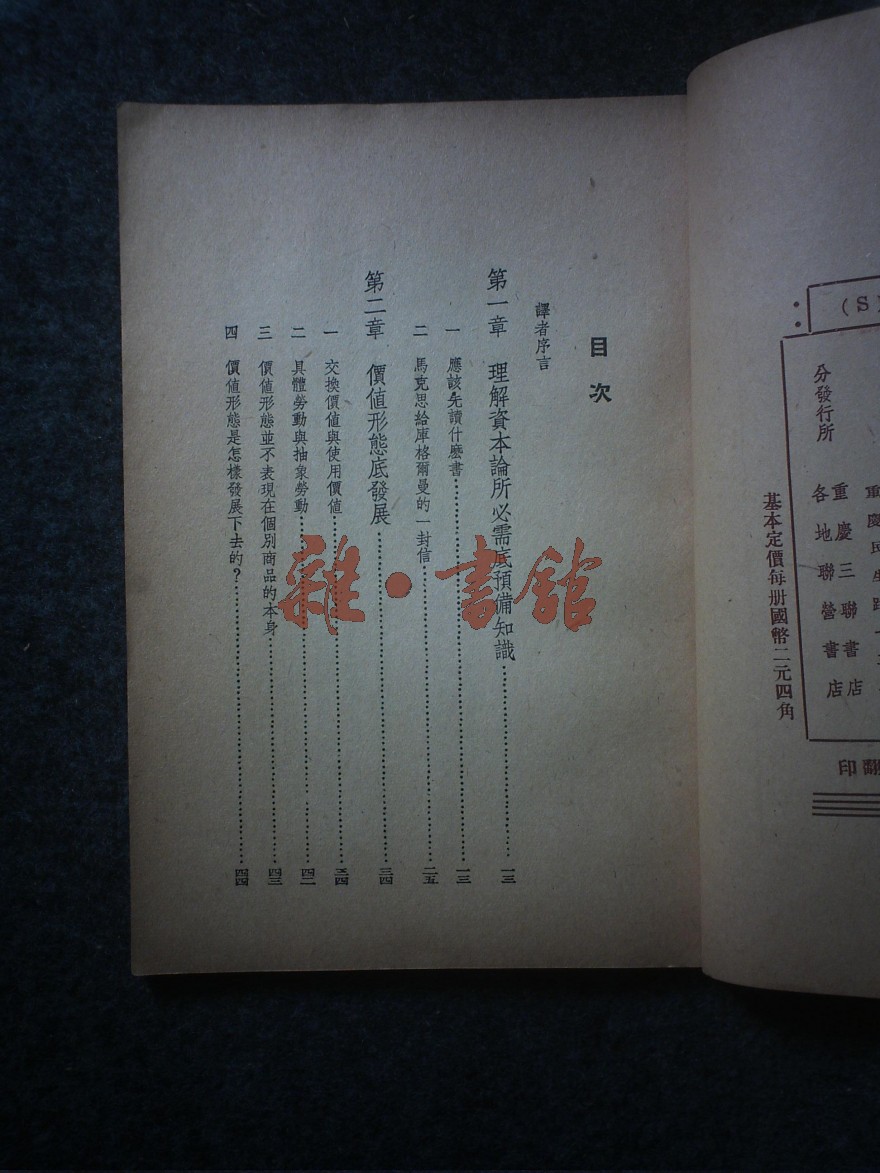 (S
分發行所
重慶三聯書店
各地聯營書店
翻印
基本定價每册國幣二元四角
目次
譯者序言
第一章 理解資本論所必需底預備知識……一三
一 應該先讀什麽書……一三
二 馬克思給庫格爾曼的一封信……二五
第二章 價値形態底發展……三四
一 交換價値與使用價値……三四
二 具體勞動與抽象勞動……四二
三 價値形態並不表現在個別商品的本身……四三
四 價値形態是怎樣發展下去的?……四四
雜·書館